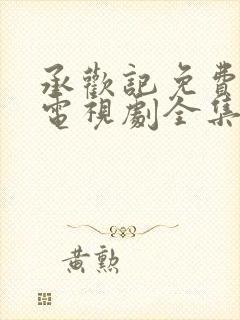 承歡記免費
電視劇全集
黃勲